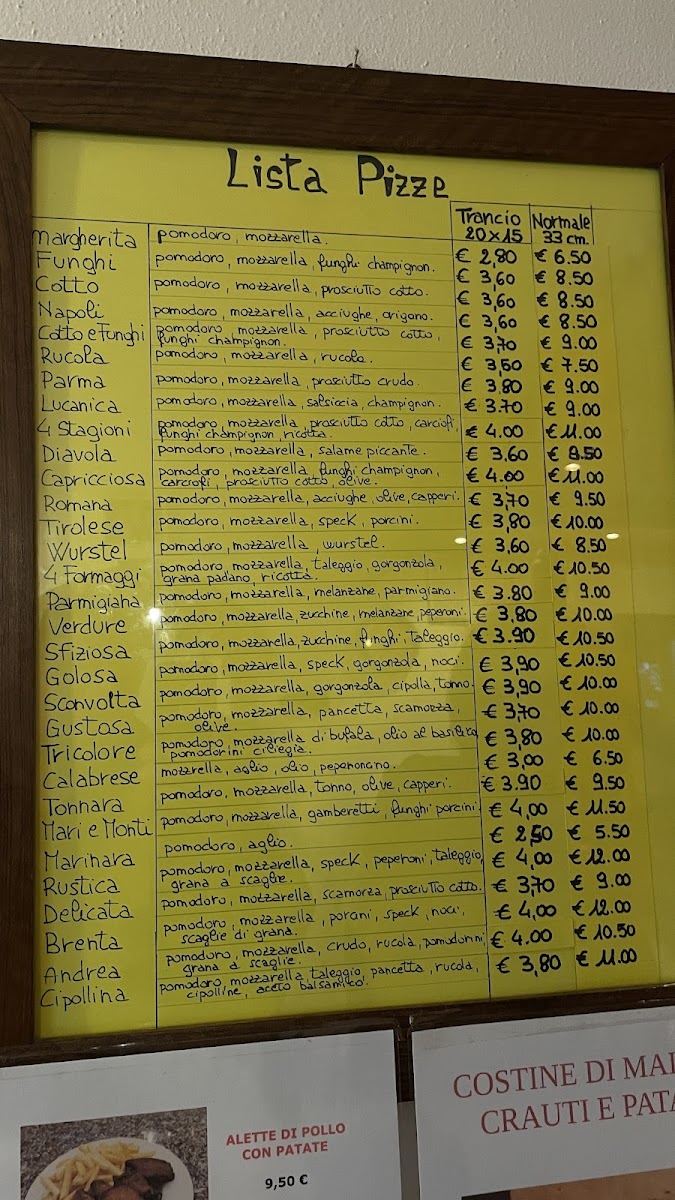 Lista Pizze
Trancio 20x15 Normale 33 cm.
margherita pomodoro, mozzarella. € 2,80 € 6.50
Funghi pomodoro, mozzarella, funghi champignon. € 3,60 € 8.50
Cotto pomodoro, mozzarella, prosciutto cotto. € 3,60 € 8.50
Napoli pomodoro, mozzarella, acciughe, origano. € 3,60 € 8.50
Cotto e Funghi pomodoro, mozzarella, prosciutto cotto, € 3,70 € 9.00
funghi champignon.
Rucola pomodoro, mozzarella, rucola. € 3,50 € 7.50
Parma pomodoro, mozzarella, prosciutto crudo. € 3.80 € 9.00
Lucanica pomodoro, mozzarella, salsiccia, champignon. € 3.70 € 9.00
4 Stagioni pomodoro, mozzarella, prosciutto cotto, carciofi, € 4.00 € 11.00
funghi champignon, ricotta.
Diavola pomodoro, mozzarella, salame piccante. € 3,60 € 9.50
Capricciosa pomodoro, mozzarella, funghi champignon, € 4.00 € 11.00
carciofi, prosciutto cotto, olive.
Romana pomodoro, mozzarella, acciughe, olive, capperi. € 3,70 € 9.50
Tirolese pomodoro, mozzarella, speck, porcini. € 3,80 € 10.00
Wurstel pomodoro, mozzarella, wurstel. € 3,60 € 8.50
4 Formaggi pomodoro, mozzarella, taleggio, gorgonzola, € 4.00 € 10.50
grana padano, ricotta.
Parmigiana pomodoro, mozzarella, melanzane, parmigiano. € 3.80 € 9.00
Verdure pomodoro, mozzarella, zucchine, melanzane, peperoni. € 3,80 € 10.00
Sfiziosa pomodoro, mozzarella, zucchine, funghi, taleggio. € 3.90 € 10.50
Golosa pomodoro, mozzarella, speck, gorgonzola, noci. € 3,90 € 10.50
Sconvolta pomodoro, mozzarella, gorgonzola, cipolla, tonno. € 3,90 € 10.00
Gustosa pomodoro, mozzarella, pancetta, scamorza, € 3,70 € 10.00
olive.
Tricolore pomodoro, mozzarella di bufala, olio al basilico, € 3,80 € 10.00
pomodorini ciliegia.
Calabrese mozzarella, aglio, olio, peperoncino. € 3,00 € 6.50
Tonnara pomodoro, mozzarella, tonno, olive, capperi. € 3.90 € 9.50
Mari e Monti pomodoro, mozzarella, gamberetti, funghi porcini. € 4,00 € 11.50
Marinara pomodoro, aglio. € 2,50 € 5.50
Rustica pomodoro, mozzarella, speck, peperoni, taleggio, € 4,00 € 12.00
grana a scaglie.
Delicata pomodoro, mozzarella, scamorza, prosciutto cotto. € 3,70 € 9.00
Brenta pomodoro, mozzarella, porcini, speck, noci, € 4,00 € 12.00
scaglie di grana.
Andrea pomodoro, mozzarella, crudo, rucola, pomodorini € 4.00 € 10.50
grana a scaglie.
Cipollina pomodoro, mozzarella, taleggio, pancetta, rucola, € 3,80 € 11.00
cipolline, aceto balsamico.
ALETTE DI POLLO
CON PATATE
9,50 €
COSTINE DI MAI
CRAUTI E PATA